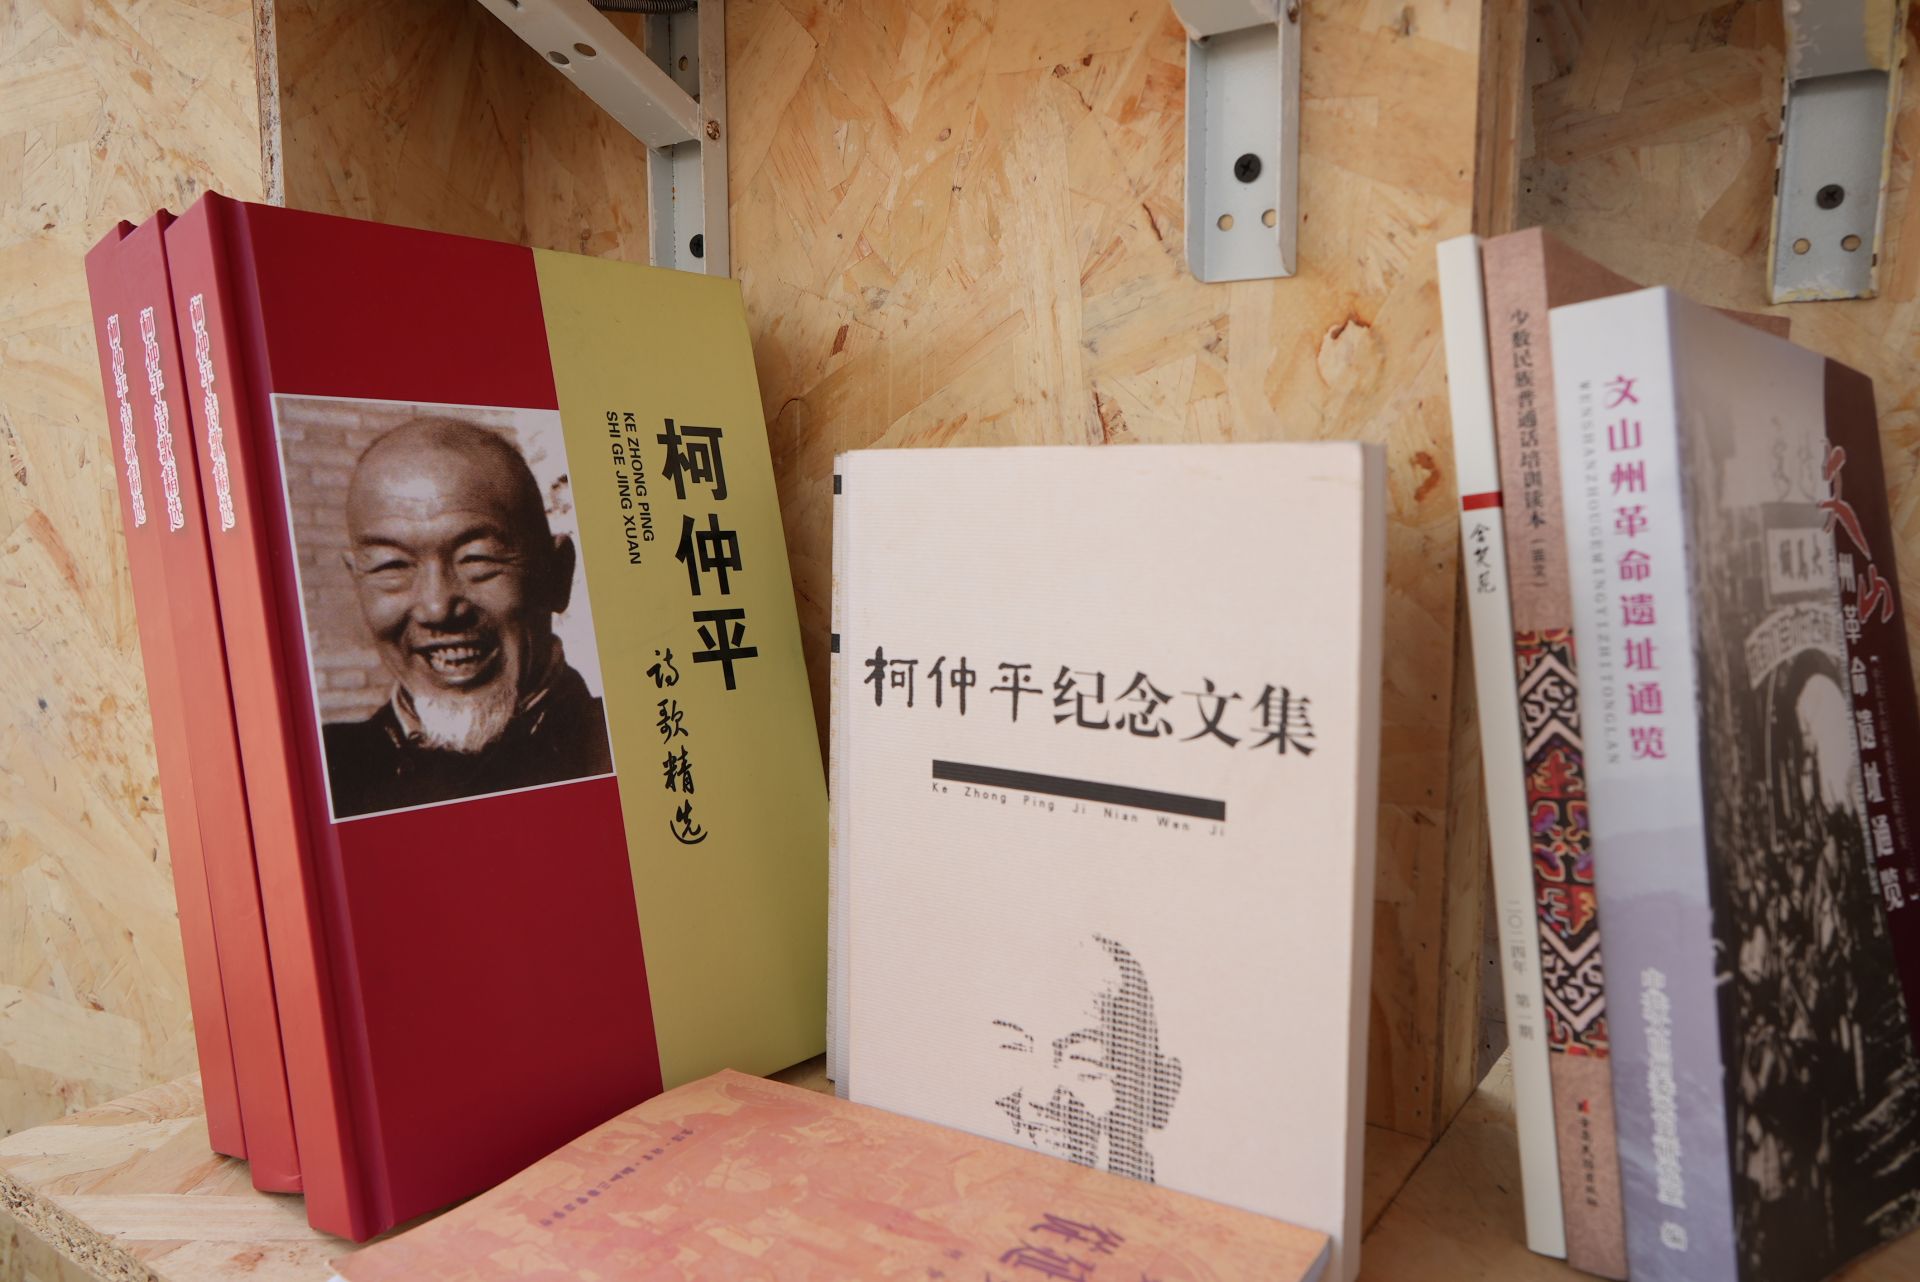 柯仲平诗歌精选
柯仲平诗歌精选
柯仲平诗歌精选
柯仲平
KE ZHONG PING
SHI GE JING XUAN
诗歌精选
柯仲平纪念文集
Ke Zhong Ping Ji Nian Wen Ji
二〇二四年 第一期
少数民族普通话培训读本（苗文）
文山州革命遗址通览
WENSHANZHOUGEMINGYIZHITONGLAN
文山
州革命遗址通览